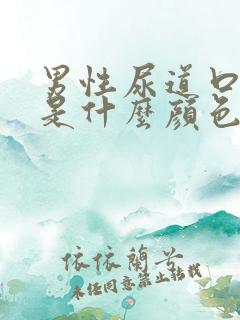 男性尿道口
是什麼顏色
依依蘭兮
未经同意禁止转载